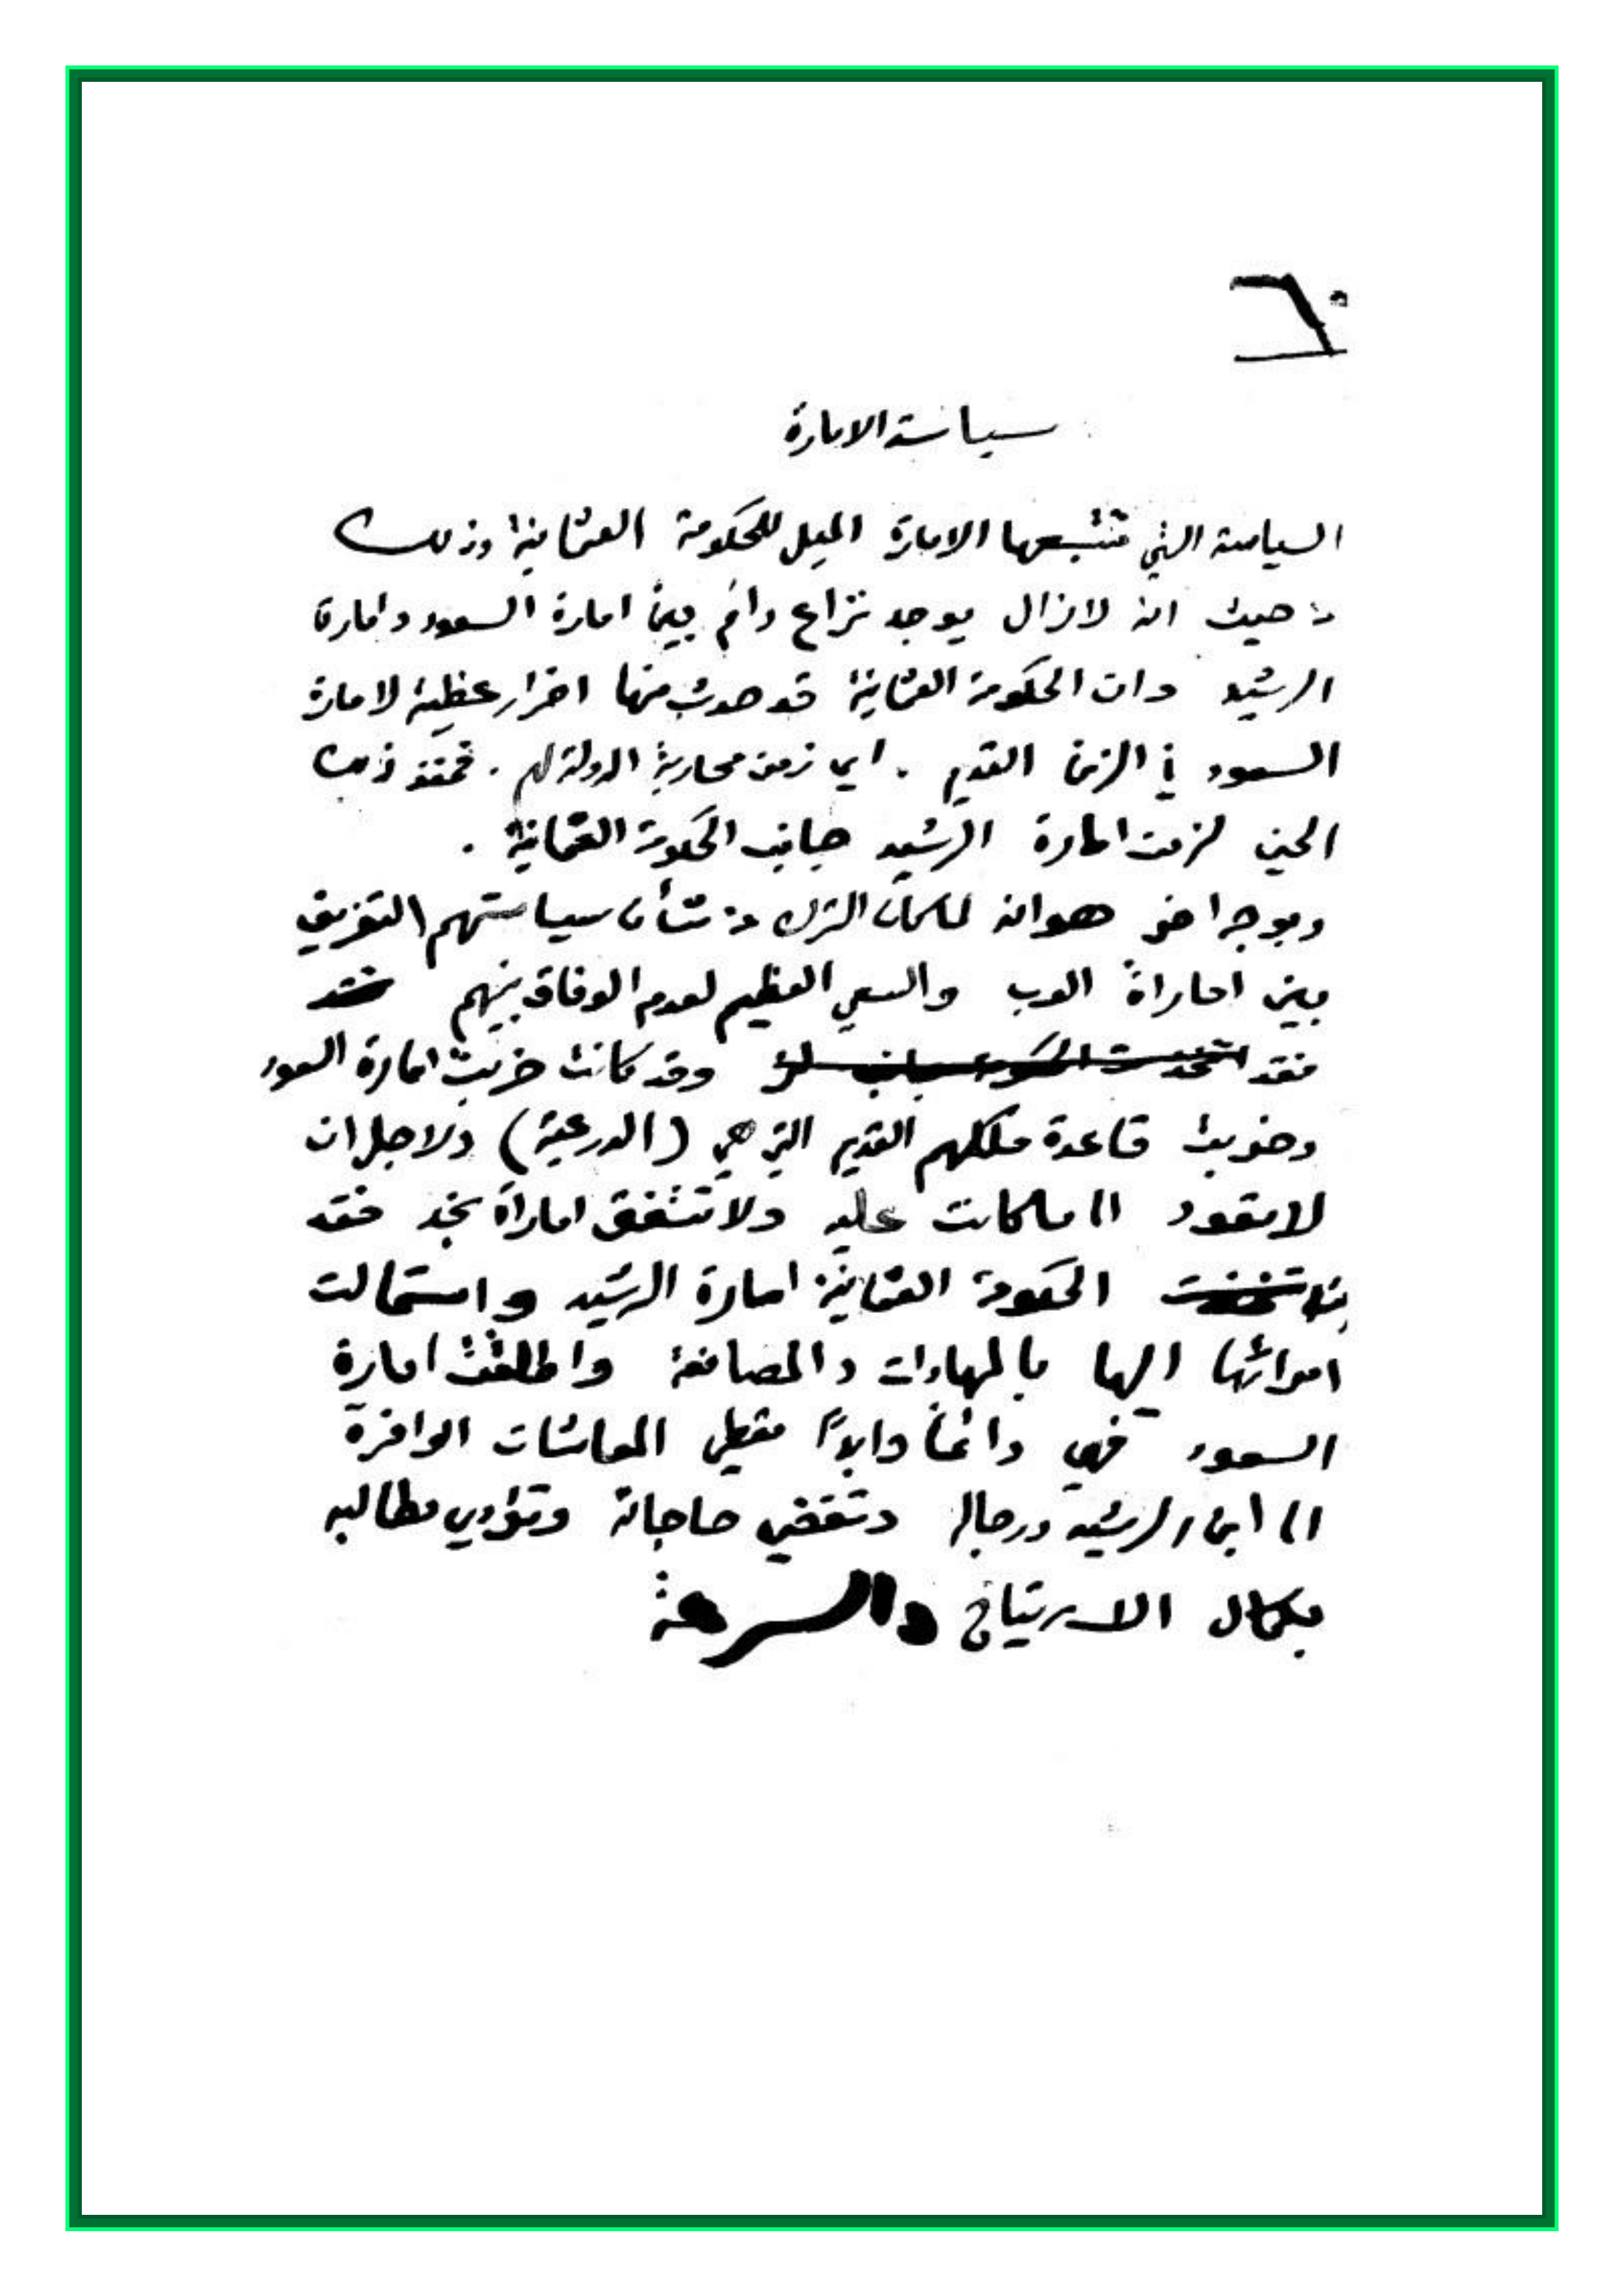 ٦٠
سياسة الامارة
السياسة التي تتبعها الامارة الميل للحكومة العثمانية وذلك
من حيث انه لازال يوجد نزاع دائم بين امارة السعود وامارة
الرشيد وان الحكومة العثمانية قد حدث منها اضرار عظيمة لامارة
السعود في الزمن القديم . اي زمن محاربة الدولة لهم . فمنذ ذلك
الحين لزمت امارة الرشيد جانب الحكومة العثمانية .
وبوجه اخر هو انه لما كان الترك من شأن سياستهم التفريق
بين امارات العرب والسعي العظيم لعدم الوفاق بينهم
فقد وقد كانت خربت امارة السعود
وخربت قاعدة ملكهم القديم التي هي (الدرعية) ولاجل ان
لا يعود الى ما كانت عليه ولا تتفق امارات نجد فقد
الحكومة العثمانية امارة الرشيد واستمالت
امرائها اليها بالمهادات والمصانعة واطلقت امارة
السعود فهي دائماً وابداً تعطي المعاشات الوافرة
الى ابن الرشيد ورجاله وتقضي حاجاته وتؤدي مطالبه
بكمال الارتياح والسرعة